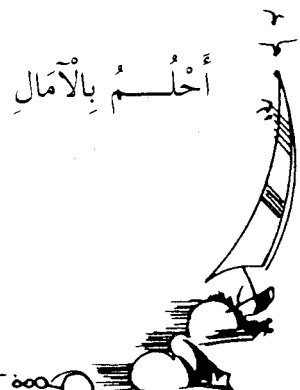 أَحْلُـــمُ بِالْآمَالِ